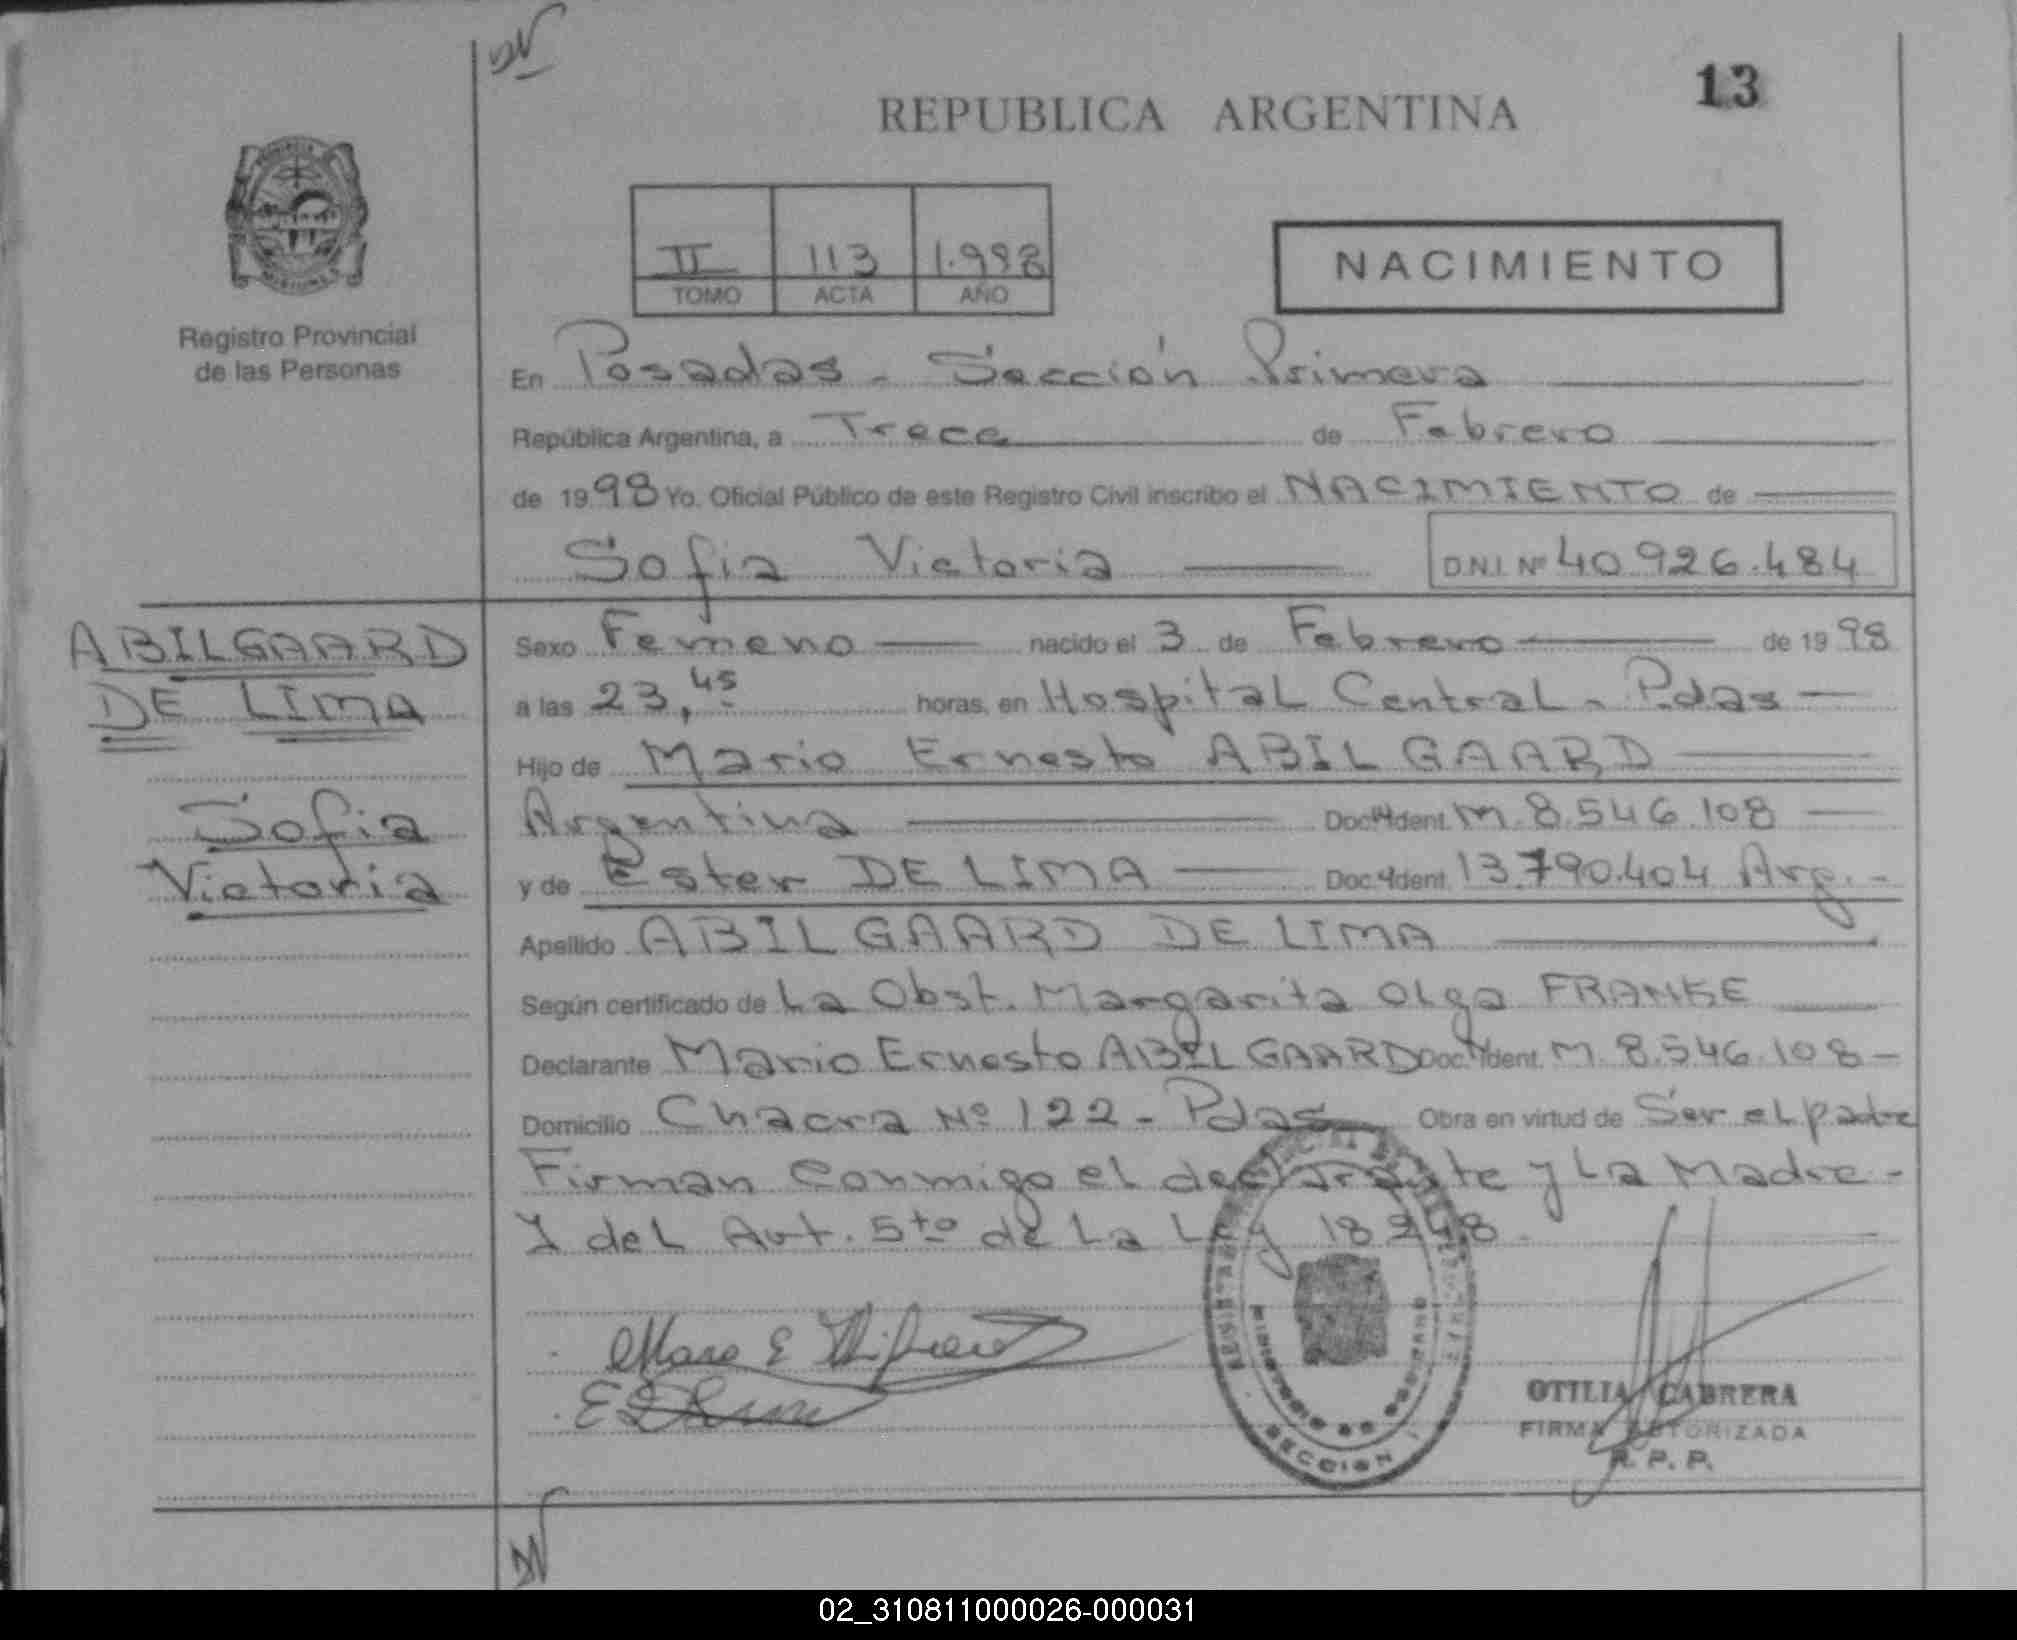 13
REPUBLICA ARGENTINA
II 113 1.998
TOMO ACTA AÑO
NACIMIENTO
Registro Provincial
de las Personas
En Posadas - Sección Primera
República Argentina, a Trece de Febrero
de 1998 Yo. Oficial Público de este Registro Civil inscribo el NACIMIENTO de
Sofia Victoria D.N.I. Nº 40.926.484
ABILGAARD
DE LIMA
Sofia
Victoria
Sexo Femeno nacido el 3 de Febrero de 1998
a las 23,45 horas, en Hospital Central - Pdas
Hijo de Mario Ernesto ABILGAARD
Argentina Doc. Ident. M 8.546.108
y de Ester DE LIMA Doc. Ident. 13.790.404 Arg. -
Apellido ABILGAARD DE LIMA
Según certificado de La Obst. Margarita Olga FRANKE
Declarante Mario Ernesto ABILGAARD Doc. Ident. M. 8.546.108 -
Domicilio Chacra Nº 122 - Pdas Obra en virtud de Ser el padre
Firman conmigo el declarante y La Madre -
Y del Art. 5to de La Ley 18248.
SECCION
OTILIA CABRERA
FIRMA AUTORIZADA
R. P. P.
02_310811000026-000031